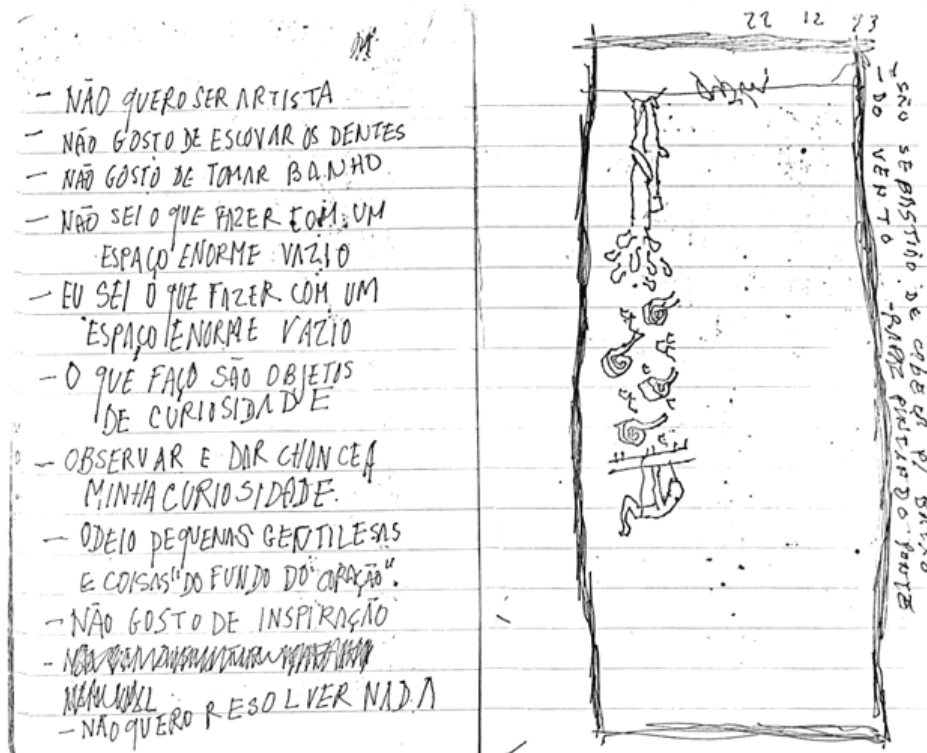 - NÃO QUERO SER ARTISTA
- NÃO GOSTO DE ESCOVAR OS DENTES
- NÃO GOSTO DE TOMAR BANHO
- NÃO SEI O QUE FAZER COM UM
ESPAÇO ENORME VAZIO
- EU SEI O QUE FAZER COM UM
ESPAÇO ENORME VAZIO
- O QUE FAÇO SÃO OBJETOS
DE CURIOSIDADE
- OBSERVAR E DAR CHANCE À
MINHA CURIOSIDADE.
- ODEIO PEQUENAS GENTILESAS
E COISAS "DO FUNDO DO CORAÇÃO".
- NÃO GOSTO DE INSPIRAÇÃO
- NÃO QUERO RESOLVER NADA
22 12 93
- SÃO SEBASTIÃO DE CABEÇA P/ BAIXO
- DO VENTO - RAPAZ PINTANDO PONTE